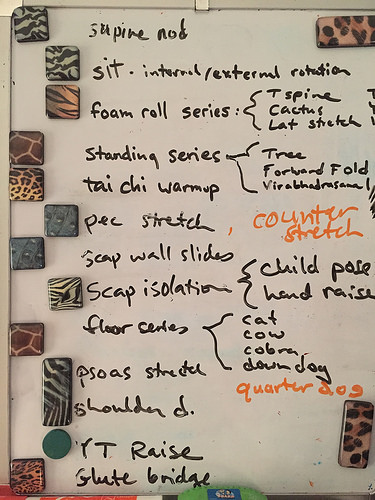 supine nod
sit - internal/external rotation
foam roll series: T spine
Cactus
Lat stretch
standing series Tree
Forward Fold
Virabhadrasana 1
tai chi warmup
pec stretch, counter stretch
scap wall slides
Scap isolation child pose
hand raise
floor series cat
cow
cobra
down dog
quarter dog
psoas stretch
shoulder d.
YT Raise
Glute bridge